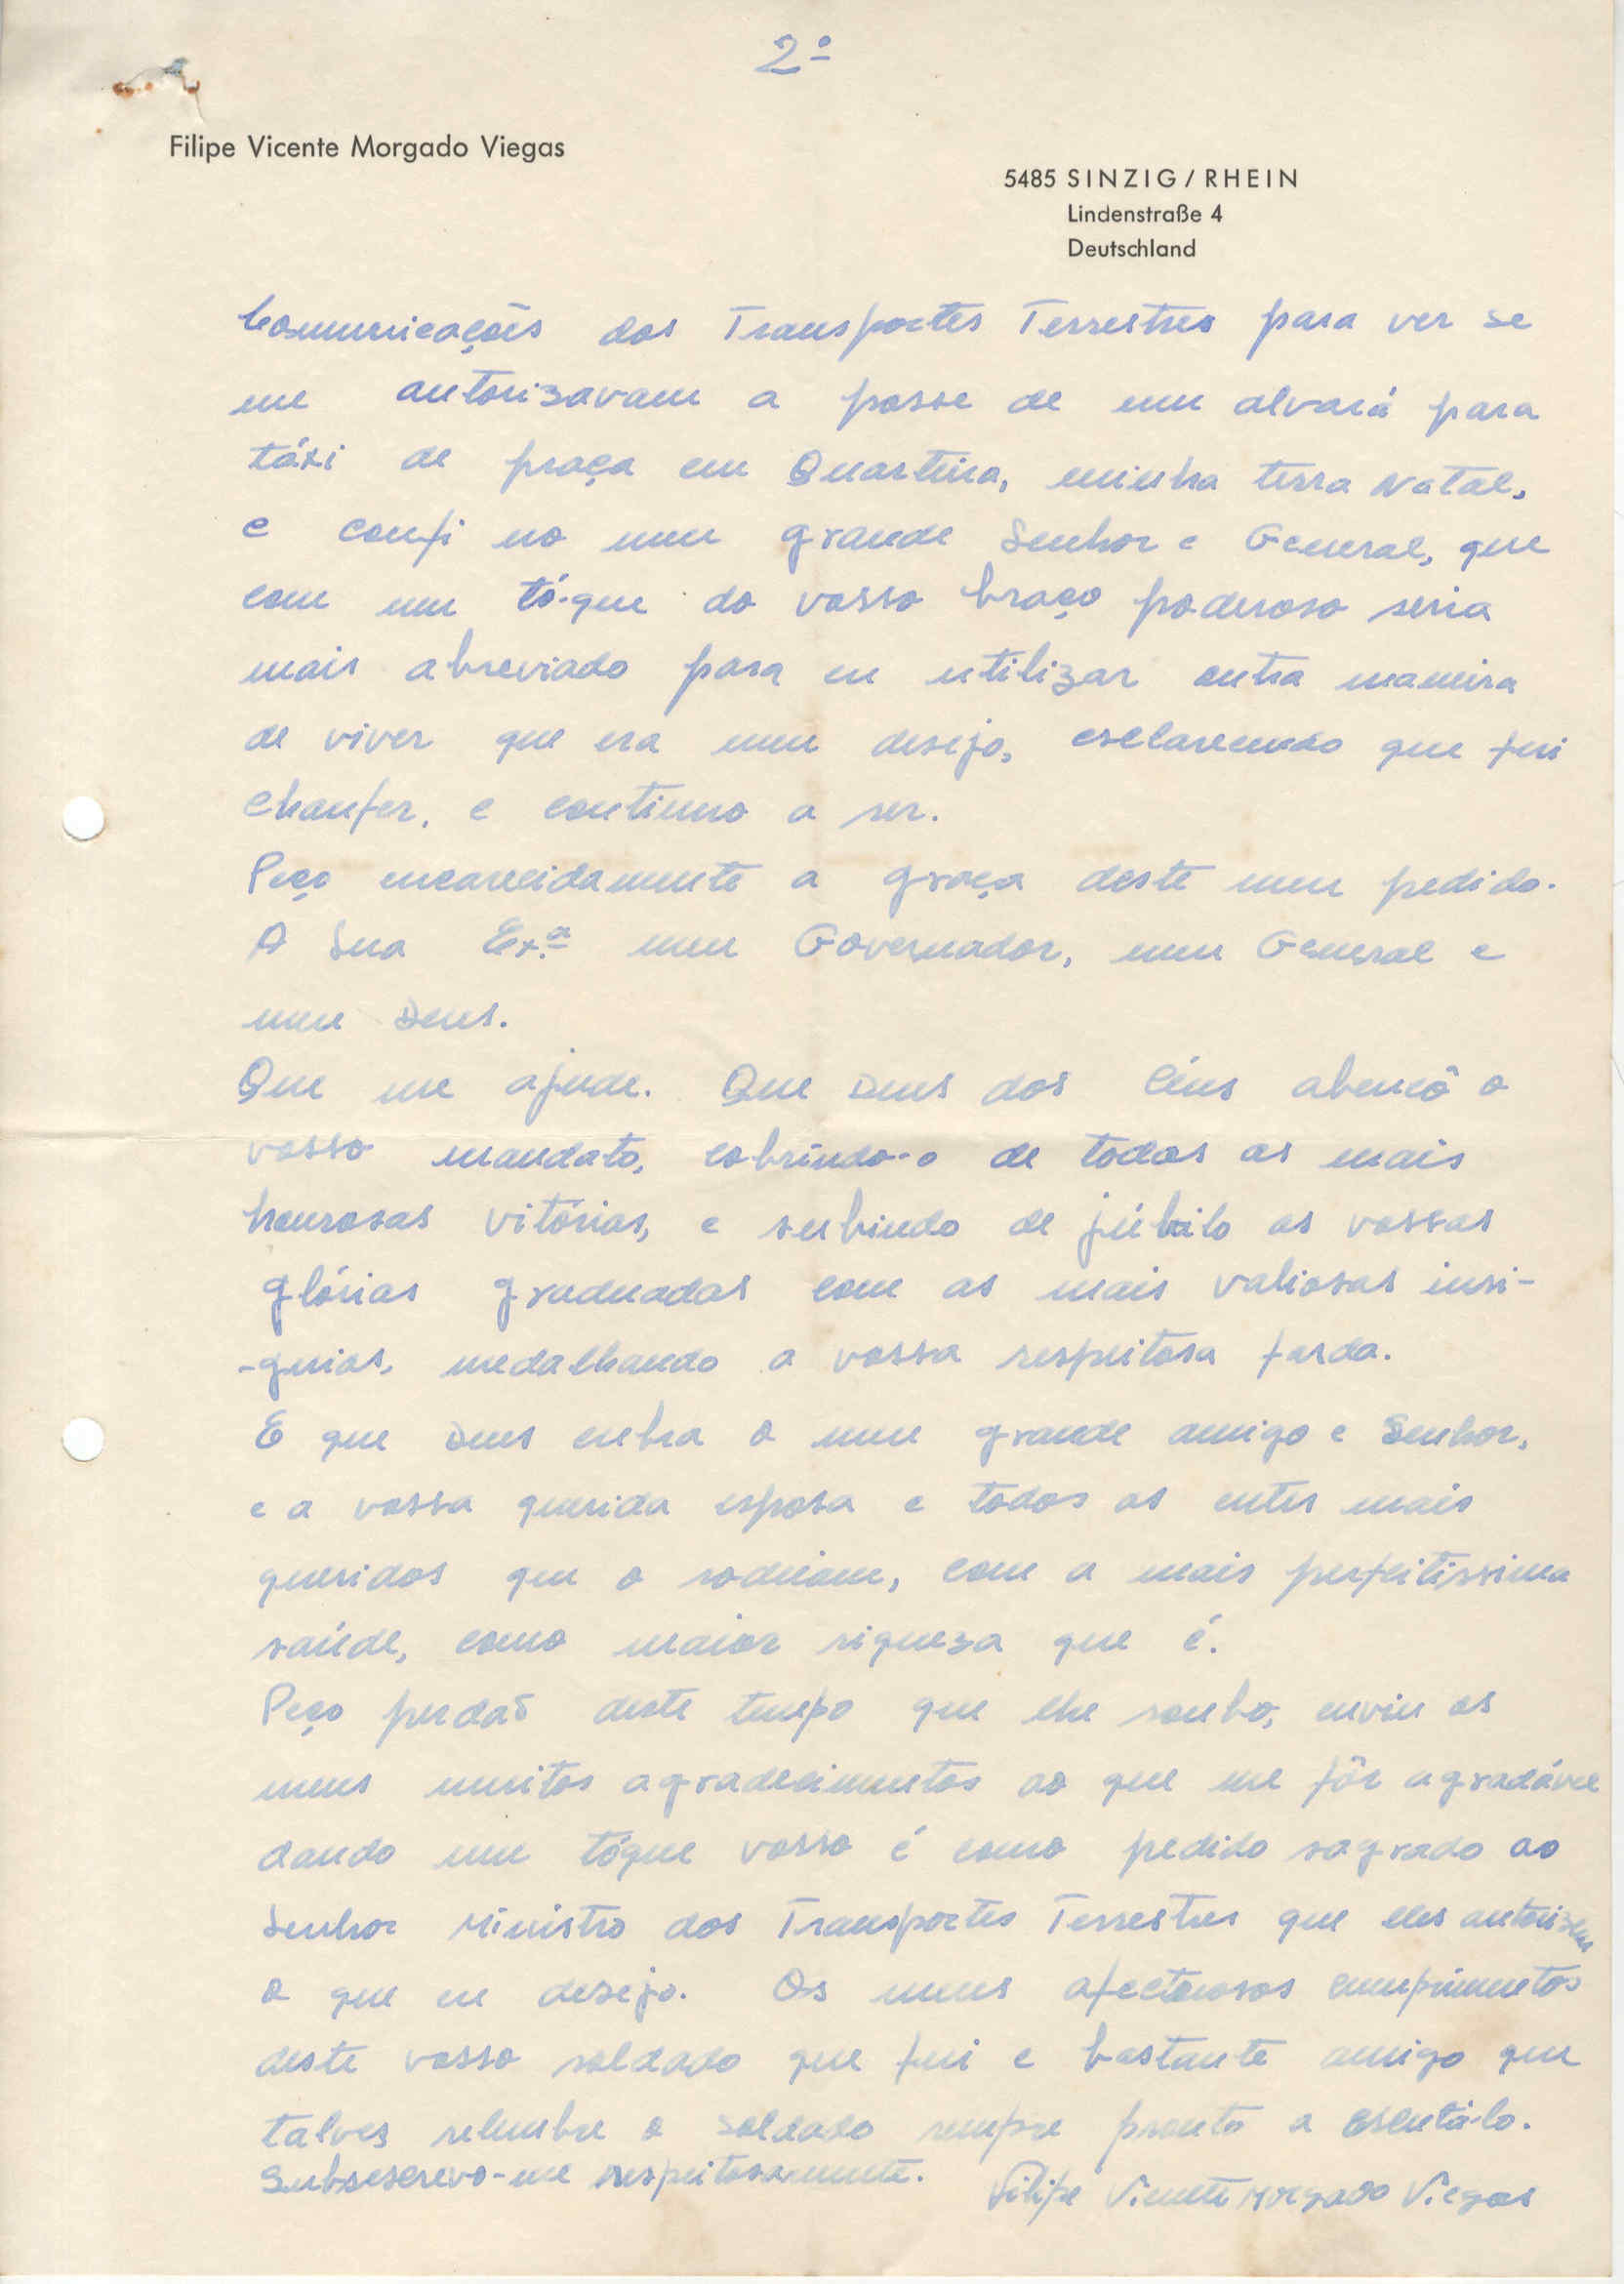 2º
Filipe Vicente Morgado Viegas
5485 SINZIG/RHEIN
Lindenstraße 4
Deutschland
Comunicações dos Transportes Terrestres para ver se
me autorizavam a posse de um alvará para
táxi de praça em Quarteira, minha terra Natal,
e confi no meu grande Senhor e General, que
com um tó-que do vosso braço poderoso seria
mais abreviado para eu utilizar outra maneira
de viver que era meu desejo, esclarecendo que fui
chaufer, e continuo a ser.
Peço encarecidamente a graça deste meu pedido.
A Sua Ex.ª meu Governador, meu General e
meu Deus.
Que me ajude. Que Deus dos Céus abençô o
vosso mandato, cobrindo-o de todas as mais
honrosas vitórias, e subindo de júbilo as vossas
glórias graduadas com as mais valiosas insi-
-gnias, medalhando a vossa respeitosa farda.
E que Deus cubra o meu grande amigo e Senhor,
e a vossa querida esposa e todos os entes mais
queridos que o rodeiam, com a mais perfeitissima
saúde, como maior riqueza que é.
Peço perdaõ deste tempo que lhe roubo, enviu os
meus muitos agradecimentos ao que me fôr agradável
dando um tóque vosso é como pedido sagrado ao
Senhor Ministro dos Transportes Terrestres que eles autorizem
o que eu desejo. Os meus afectuosos cumprimentos
deste vosso soldado que fui e bastante amigo que
talves relembre o soldado sempre pronto a escutá-lo.
Subsescrevo-me respeitosamente. Filipe Vicente Morgado Viegas